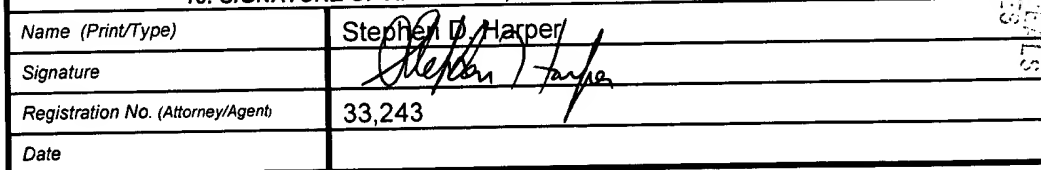 SIGNATURE OF
Name (Print/Type) Stephen D. Harper
Signature Stephen D Harper
Registration No. (Attorney/Agent) 33,243
Date